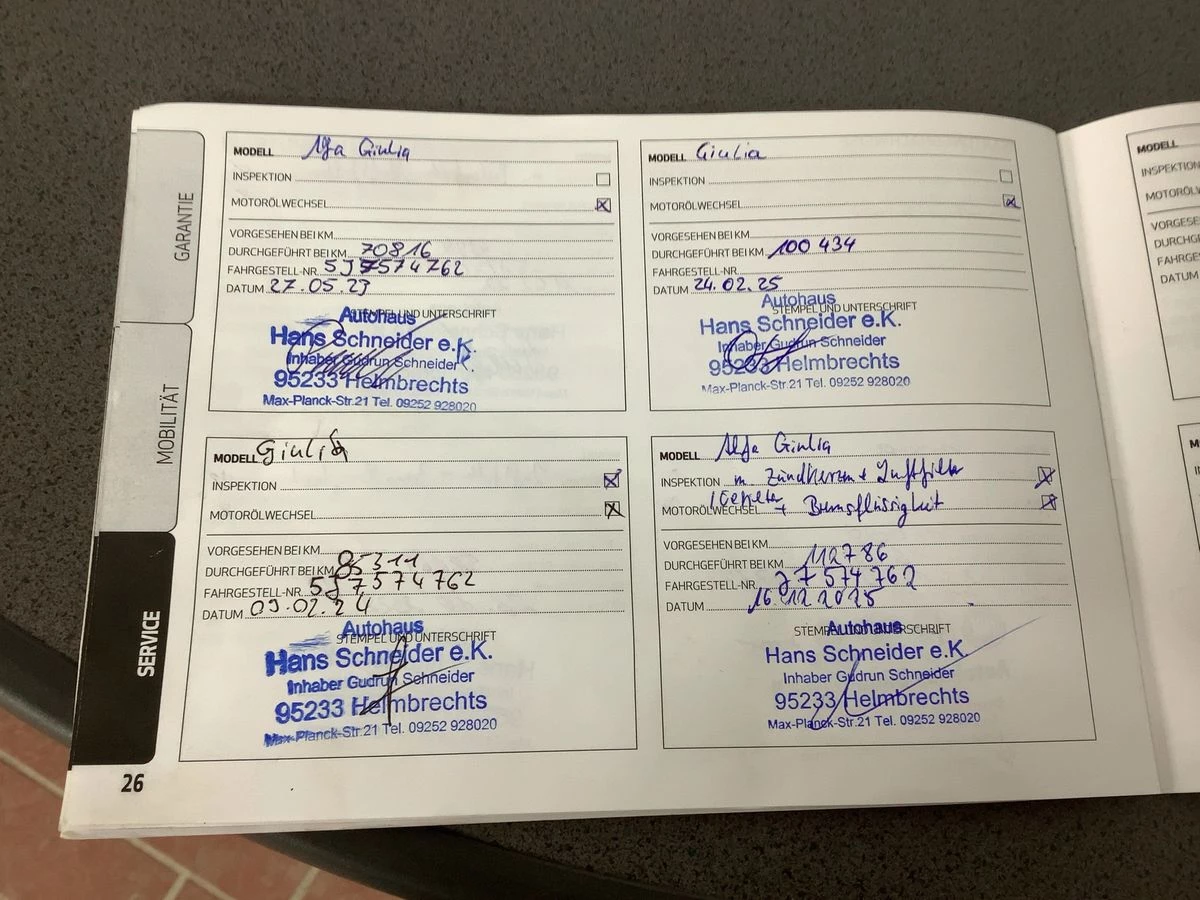 GARANTIE
MOBILITÄT
SERVICE
26
MODELL Alfa Giulia
INSPEKTION
MOTORÖLWECHSEL
VORGESEHEN BEI KM
DURCHGEFÜHRT BEI KM 70816
FAHRGESTELL-NR. 5J7574762
DATUM 27.05.23
STEMPEL UND UNTERSCHRIFT
Autohaus
Hans Schneider e.K.
Inhaber Gudrun Schneider
95233 Helmbrechts
Max-Planck-Str.21 Tel. 09252 928020
MODELL Giulia
INSPEKTION
MOTORÖLWECHSEL
VORGESEHEN BEI KM
DURCHGEFÜHRT BEI KM 100 434
FAHRGESTELL-NR.
DATUM 24.02.25
STEMPEL UND UNTERSCHRIFT
Autohaus
Hans Schneider e.K.
Inhaber Gudrun Schneider
95233 Helmbrechts
Max-Planck-Str.21 Tel. 09252 928020
MODELL Giulia
INSPEKTION
MOTORÖLWECHSEL
VORGESEHEN BEI KM
DURCHGEFÜHRT BEI KM 85311
FAHRGESTELL-NR. 5J7574762
DATUM 09.02.24
STEMPEL UND UNTERSCHRIFT
Autohaus
Hans Schneider e.K.
Inhaber Gudrun Schneider
95233 Helmbrechts
Max-Planck-Str.21 Tel. 09252 928020
MODELL Alfa Giulia
INSPEKTION m. Zündkerzen + Luftfilter
MOTORÖLWECHSEL + Bremsflüssigkeit
VORGESEHEN BEI KM
DURCHGEFÜHRT BEI KM 112786
FAHRGESTELL-NR. J7574762
DATUM 16.12.2025
STEMPEL UND UNTERSCHRIFT
Autohaus
Hans Schneider e.K.
Inhaber Gudrun Schneider
95233 Helmbrechts
Max-Planck-Str.21 Tel. 09252 928020
MODELL
INSPEKTION